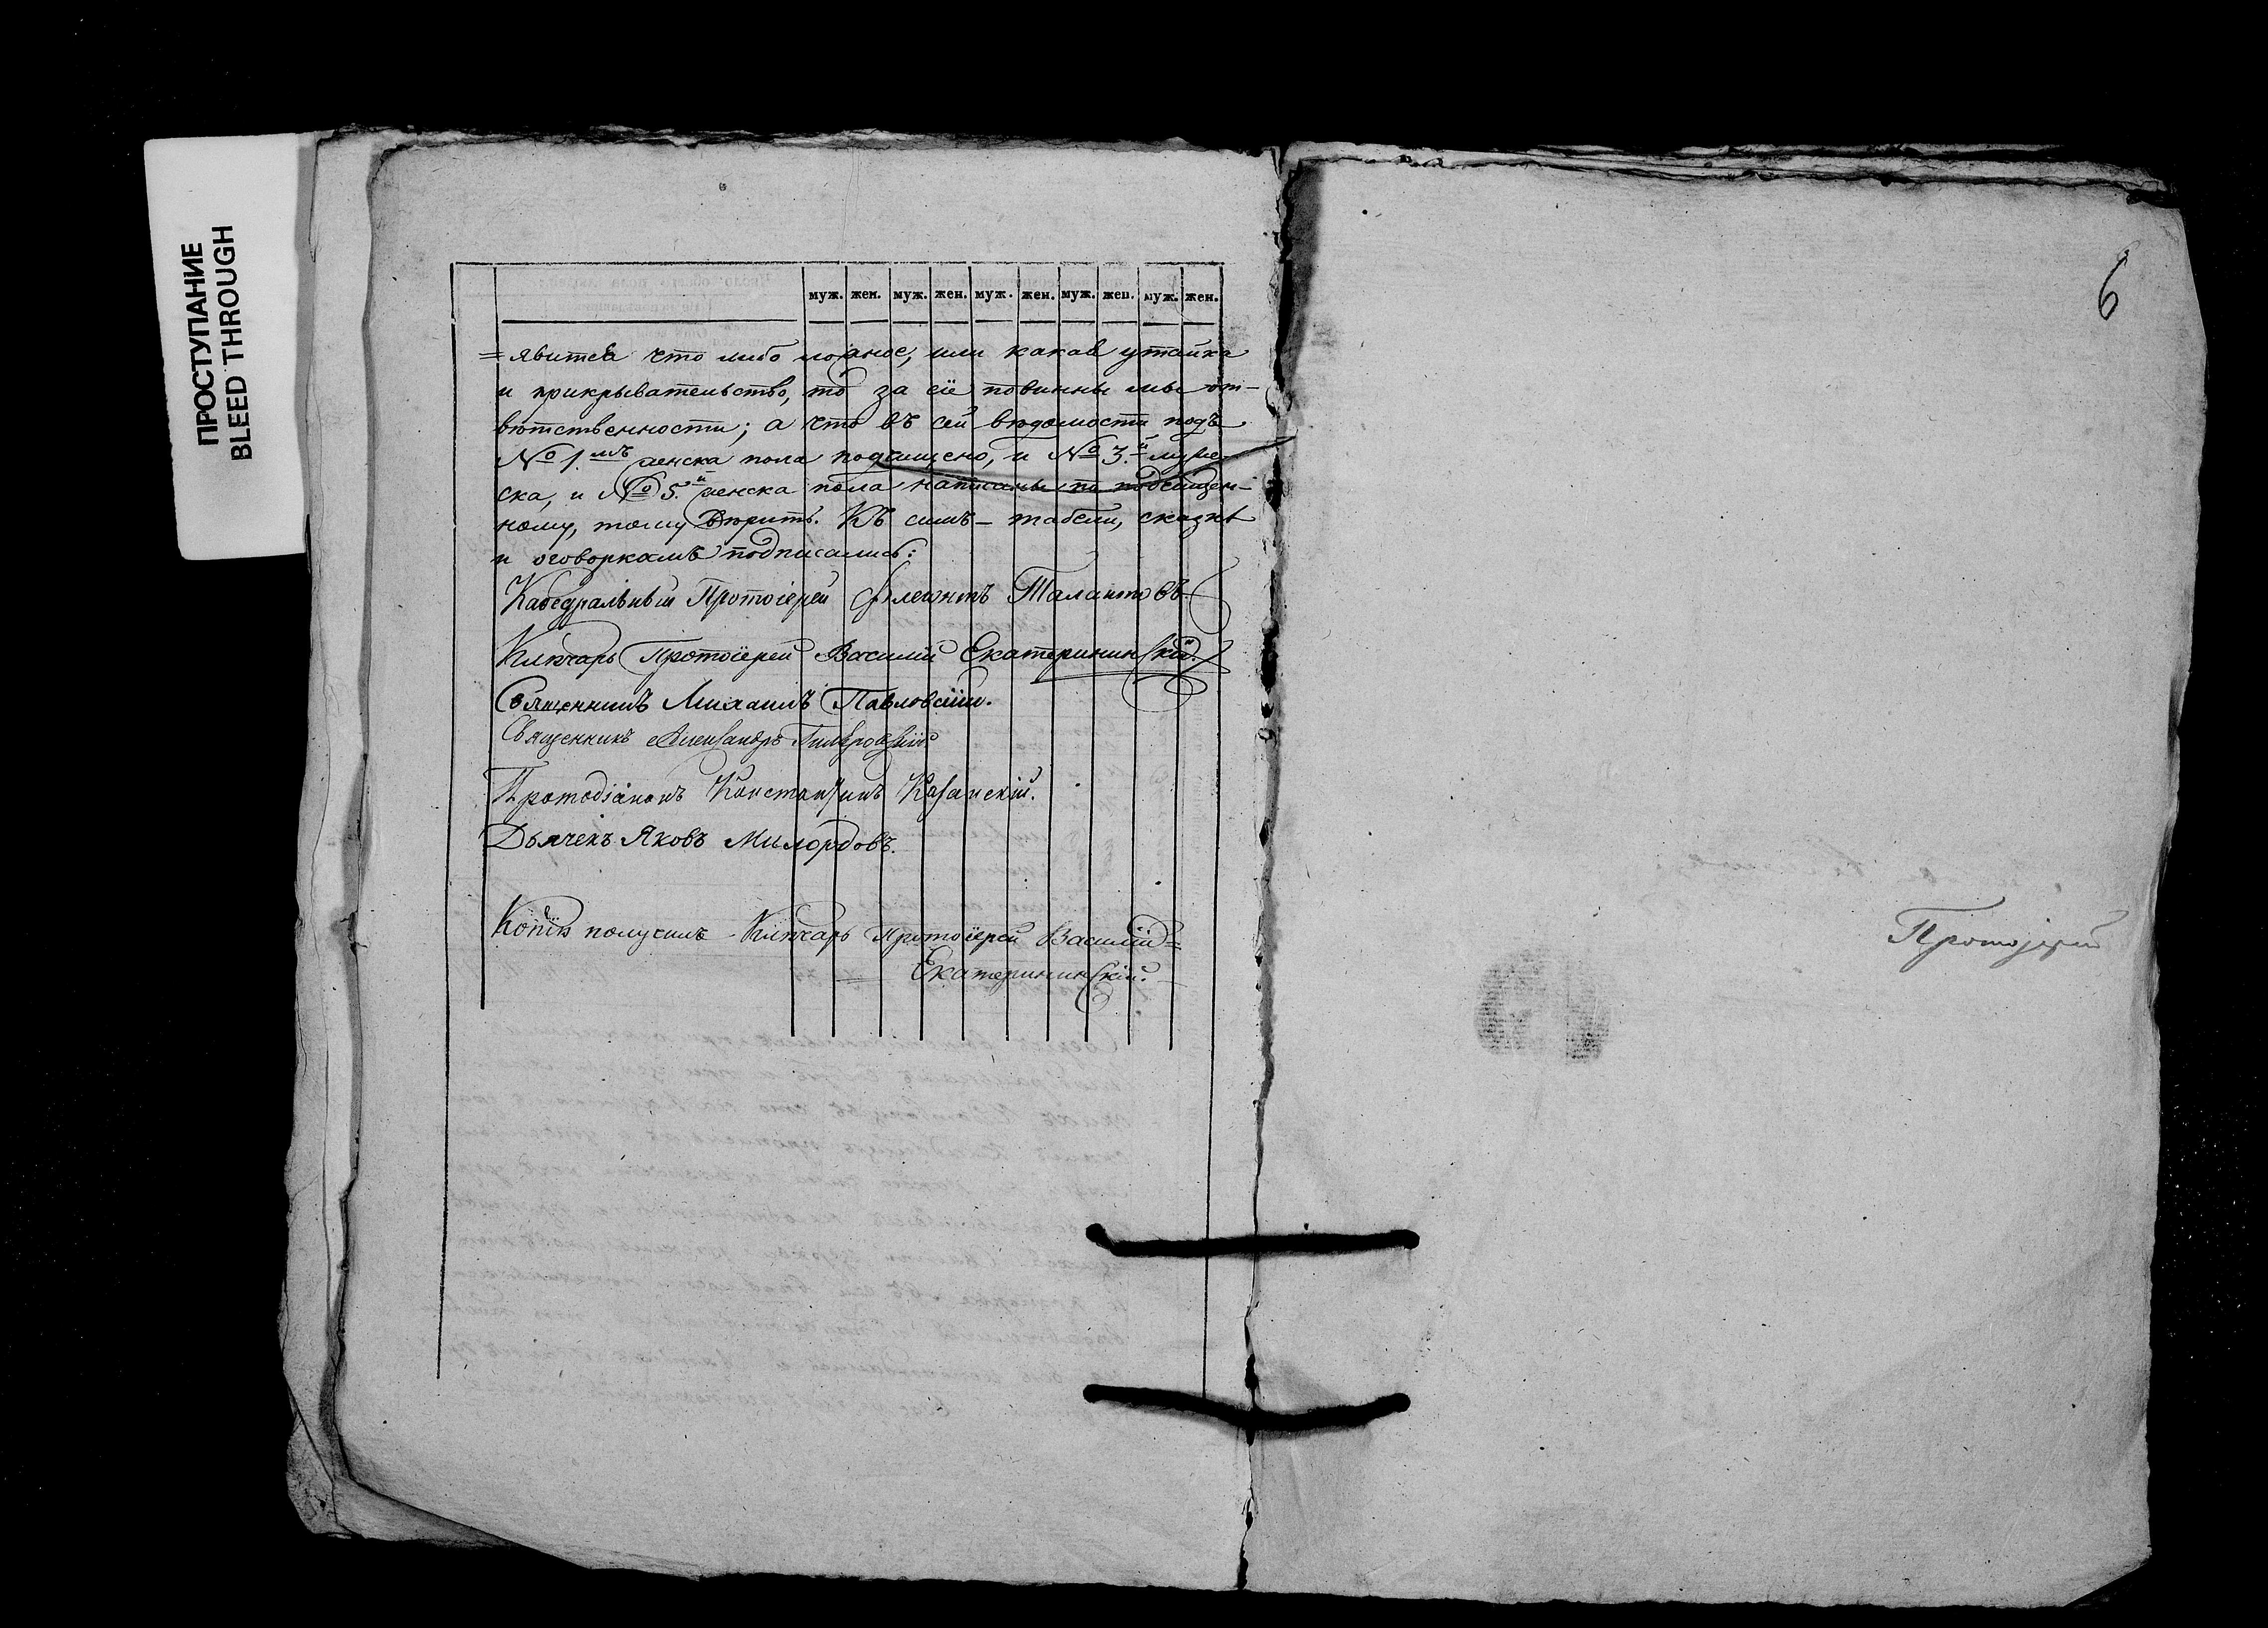 ПРОСТУПАНИЕ
BLEED THROUGH
муж. жен. муж. жен. муж. жен. муж. жен. муж. жен.
= явится что либо ложное, или какая утайка
и прикрывательство, то за сіе повинны мы от-
вѣтственности; а что въ сей вѣдомости подъ
№ 1.мъ женска пола подчищено, и № 3.й муже-
ска, и № 5.й женска пола написаны по подчищен-
ному, тому вѣрить. Къ симъ – табели, сказкѣ
и оговоркамъ подписались:
Каѳедральный Протоіерей Флегонтъ Талантовъ.
Ключарь Протоіерей Василій Екатерининскій.
Священникъ Михаилъ Павловскій.
Священникъ Александръ
Протодіаконъ Константинъ Казанскій.
Дьячекъ Яковъ Милордовъ.
Копію получилъ Ключарь Протоіерей Василій =
= Екатерининскій.
6
Протоіерей